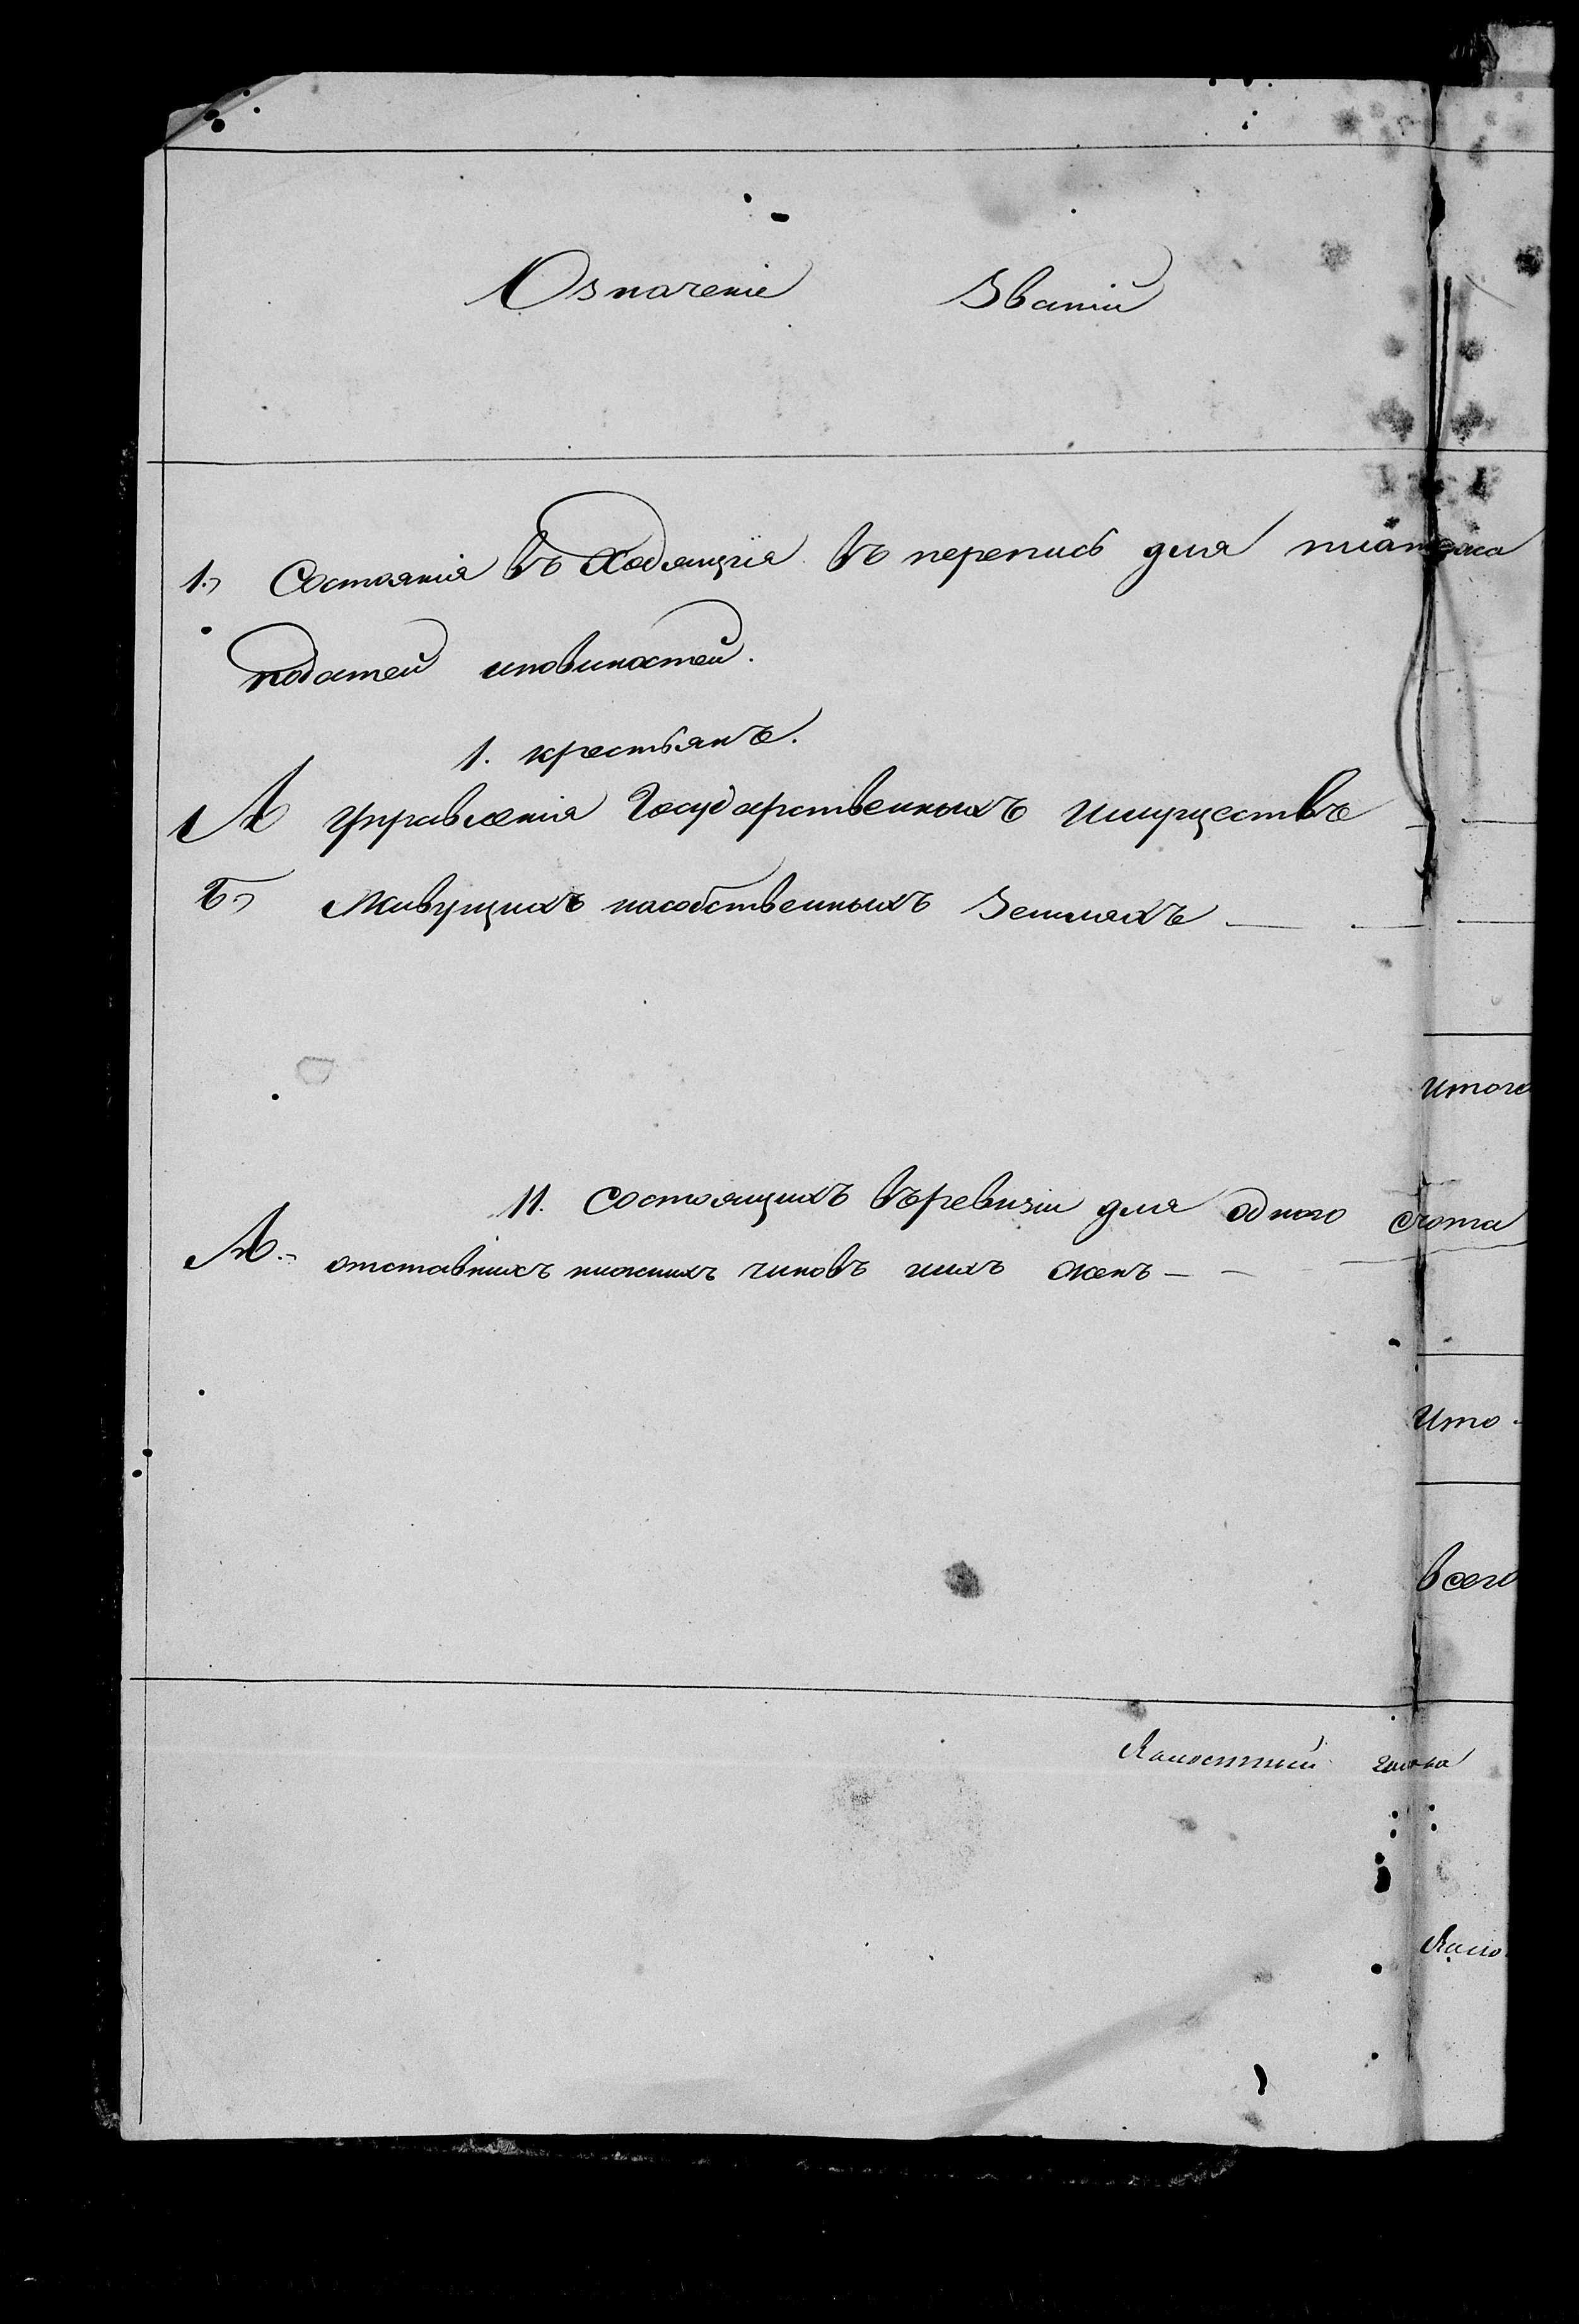 Означеніе Званій
1. Состоянія въ Ходящія въ перепись для платежа
податей иповиностей.
1. крестьянъ.
А Управленія Государственныхъ Имуществъ
Б. Живущихъ насобственныхъ Земляхъ
Итого
11. Состоящихъ въревизіи для одного счота
А. отставныхъ нижнихъ чиновъ ихъ женъ
Ито
Всего
Волостный голова